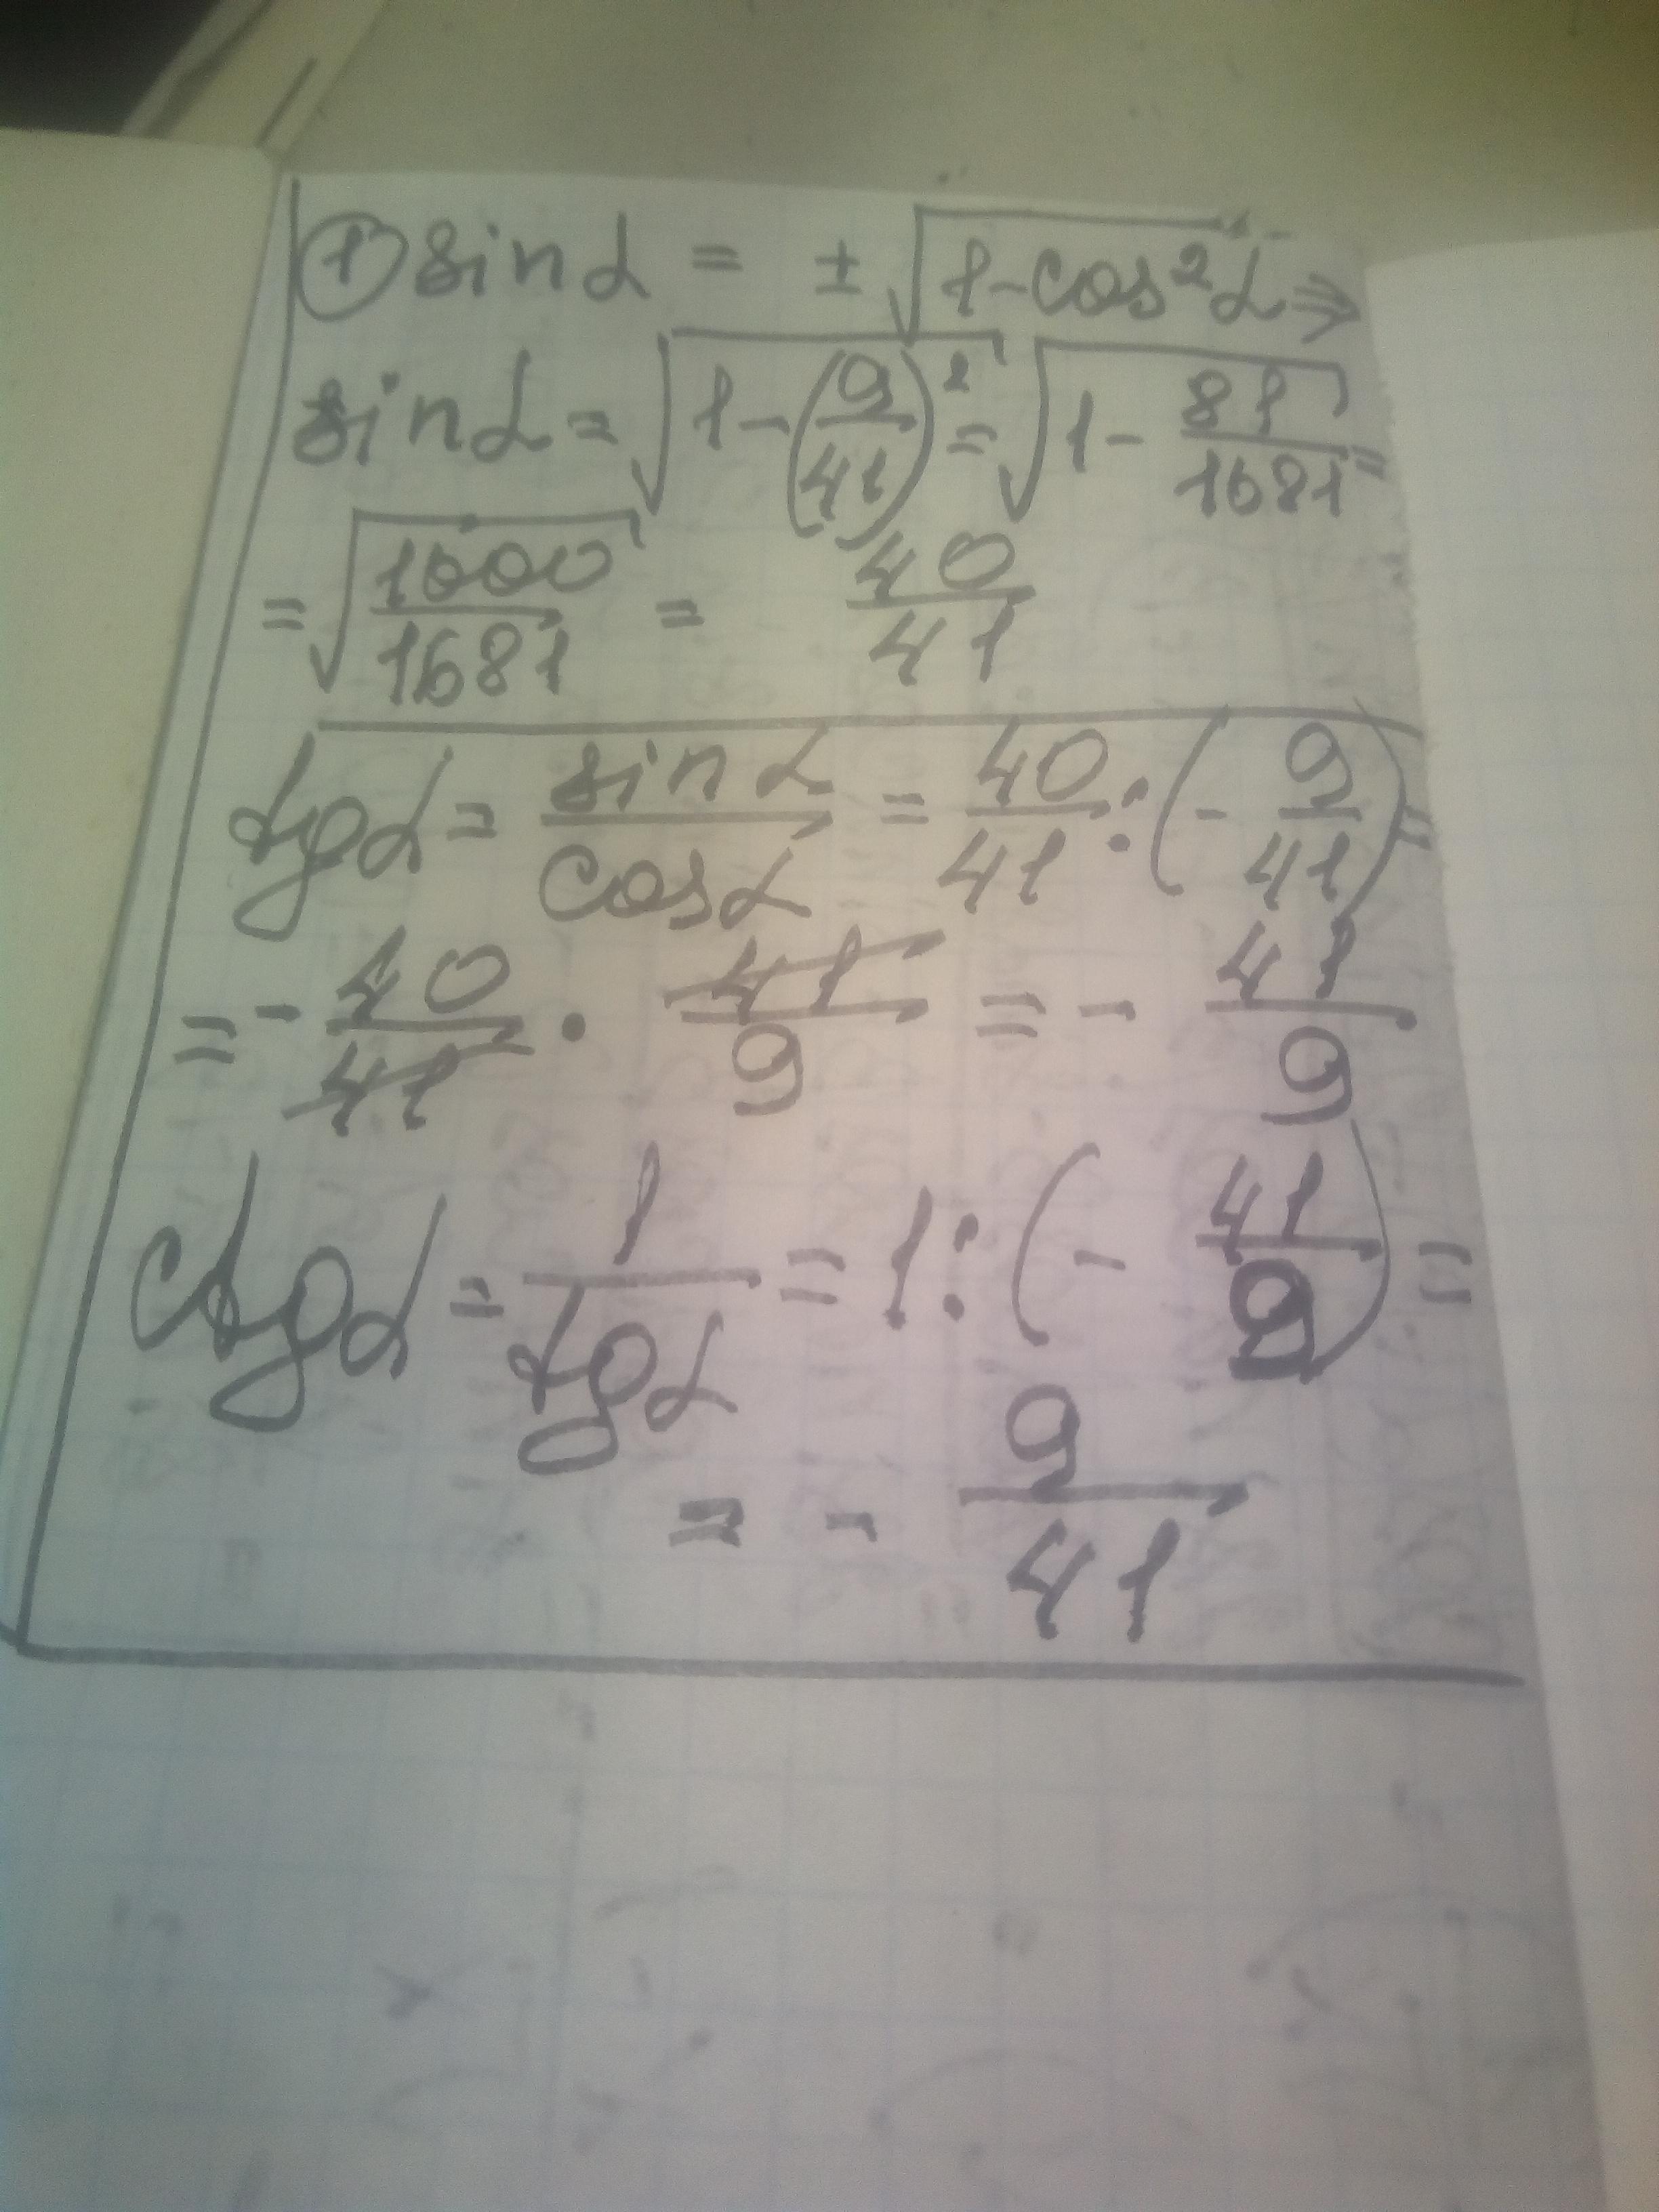 ① sin α = ± √(1-cos²α) ⇒
sin α = √(1-(9/41)²) = √(1 - 81/1681) =
= √(1600/1681) = 40/41
tg α = sin α/cos α = 40/41 : (- 9/41) =
= - 40/41 · 41/9 = - 41/9
ctg α = 1/tg α = 1 : (- 41/9) =
= - 9/41